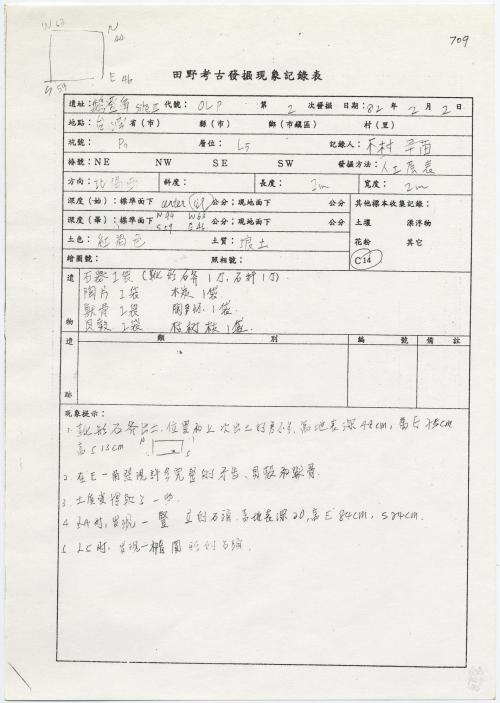 709
W 63
N 44
S 59
E 46
田野考古發掘現象記錄表
遺址：鵝鑾鼻 site II 代號： OLP 第 2 次發掘 日期：82 年 2 月 2 日
地點：台灣 省(市) 縣(市) 鄉(市鎮區) 村(里)
坑號： P11 層位： L5 記錄人：
格號：NE NW SE SW 發掘方法：人工層表
方向：北偏西 斜度： 長度： 2m 寬度： 2m
深度(始)：標準面下 center 61 公分；現地面下 公分 其他標本收集記錄：
深度(畢)：標準面下 N 44 W 63 S 59 E 46 公分；現地面下 公分 土壤 漂浮物
土色：紅褐色 土質：壤土 花粉 其它
繪圖號： 照相號： C14
遺物
石器 1 袋 (靴形石斧 1ケ, 石料 1ケ)
陶片 1 袋 木炭 1袋
獸骨 1 袋 陶 環 1袋.
貝殼 1 袋 1袋.
遺跡
類別 編號 備註
現象提示：
1. 靴形石斧出土, 位置和上次出土的 離地表深 48cm, 離E 75cm
離S 13cm N S
2. 在E一角發現許多完整的牙齒、貝殼和獸骨.
3. 土質變得軟了一些.
4. L4時, 出現一豎立的石頭. 離地表深20, 離E 84cm, S 24cm.
5. L5時, 出現一橢圓形的石頭.